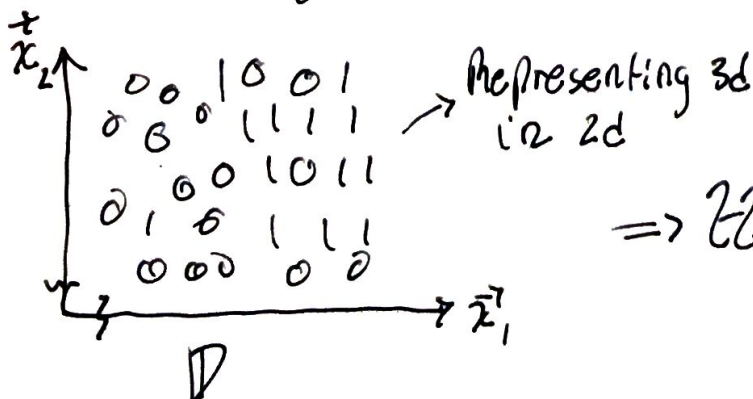 x₂
0 0 1 0 0 1
0 0 0 1 1 1 1
0 0 1 0 1 1
0 1 0 1 1 1
0 0 0 0 0
Representing 3d
in 2d
=>
x₁
D